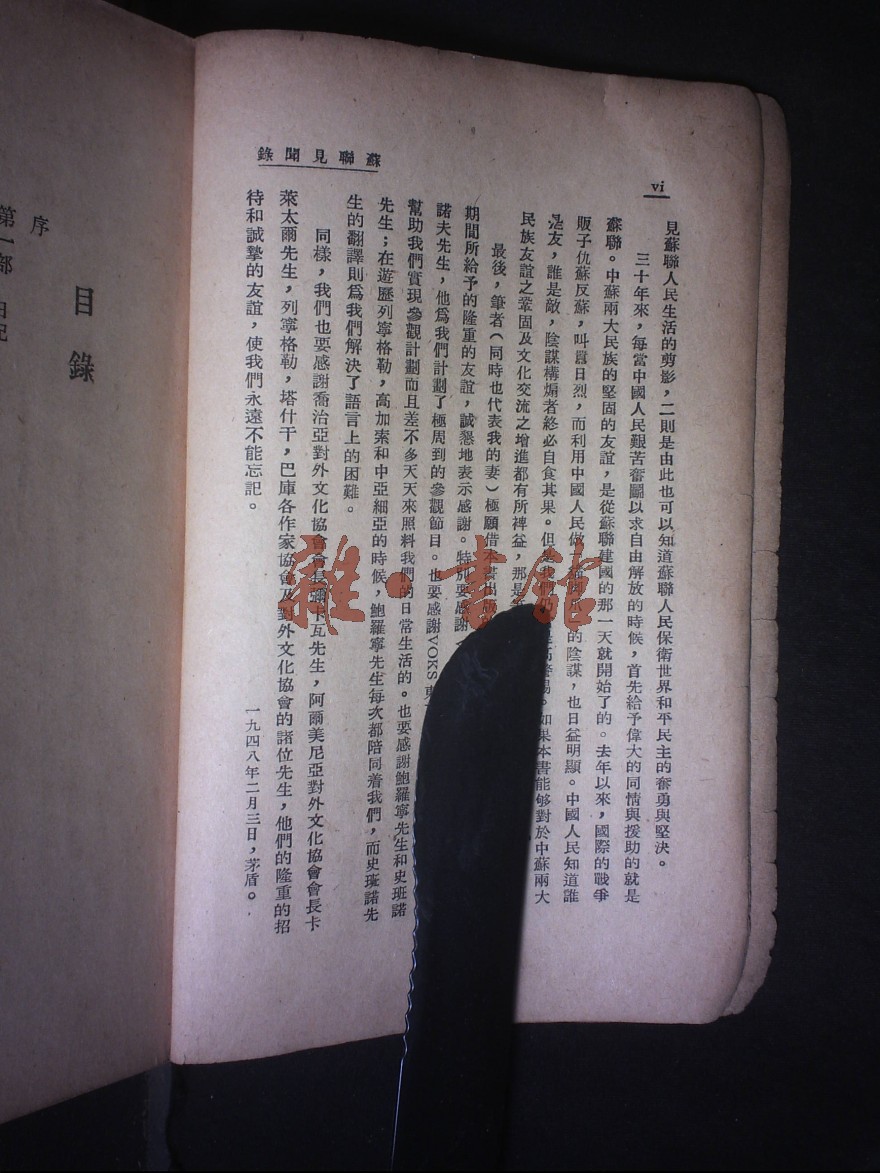 vi
蘇聯見聞錄
見蘇聯人民生活的剪影，二則是由此也可以知道蘇聯人民保衛世界和平民主的奮勇與堅決。
三十年來，每當中國人民艱苦奮鬭以求自由解放的時候，首先給予偉大的同情與援助的就是
蘇聯。中蘇兩大民族的堅固的友誼，是從蘇聯建國的那一天就開始了的。去年以來，國際的戰爭
販子仇蘇反蘇，叫囂日烈，而利用中國人民做的陰謀，也日益明顯。中國人民知道誰
是友，誰是敵，陰謀構煽者終必自食其果。但如果本書能够對於中蘇兩大
民族友誼之鞏固及文化交流之增進都有所裨益，那是
最後，筆者（同時也代表我的妻）極願借本書出版
期間所給予的隆重的友誼，誠懇地表示感謝。特別要感謝
諾夫先生，他爲我們計劃了極周到的參觀節目。也要感謝VOKS東
幫助我們實現參觀計劃而且差不多天天來照料我們的日常生活的。也要感謝鮑羅寧先生和史班諾
先生；在遊歷列寧格勒，高加索和中亞細亞的時候，鮑羅寧先生每次都陪同着我們，而史班諾先
生的翻譯則爲我們解決了語言上的困難。
同樣，我們也要感謝喬治亞對外文化協會會長彌卡瓦先生，阿爾美尼亞對外文化協會會長卡
萊太爾先生，列寧格勒，塔什干，巴庫各作家協會及對外文化協會的諸位先生，他們的隆重的招
待和誠摯的友誼，使我們永遠不能忘記。
一九四八年二月三日，茅盾。
目錄
序
第一部 日記
雜·書館